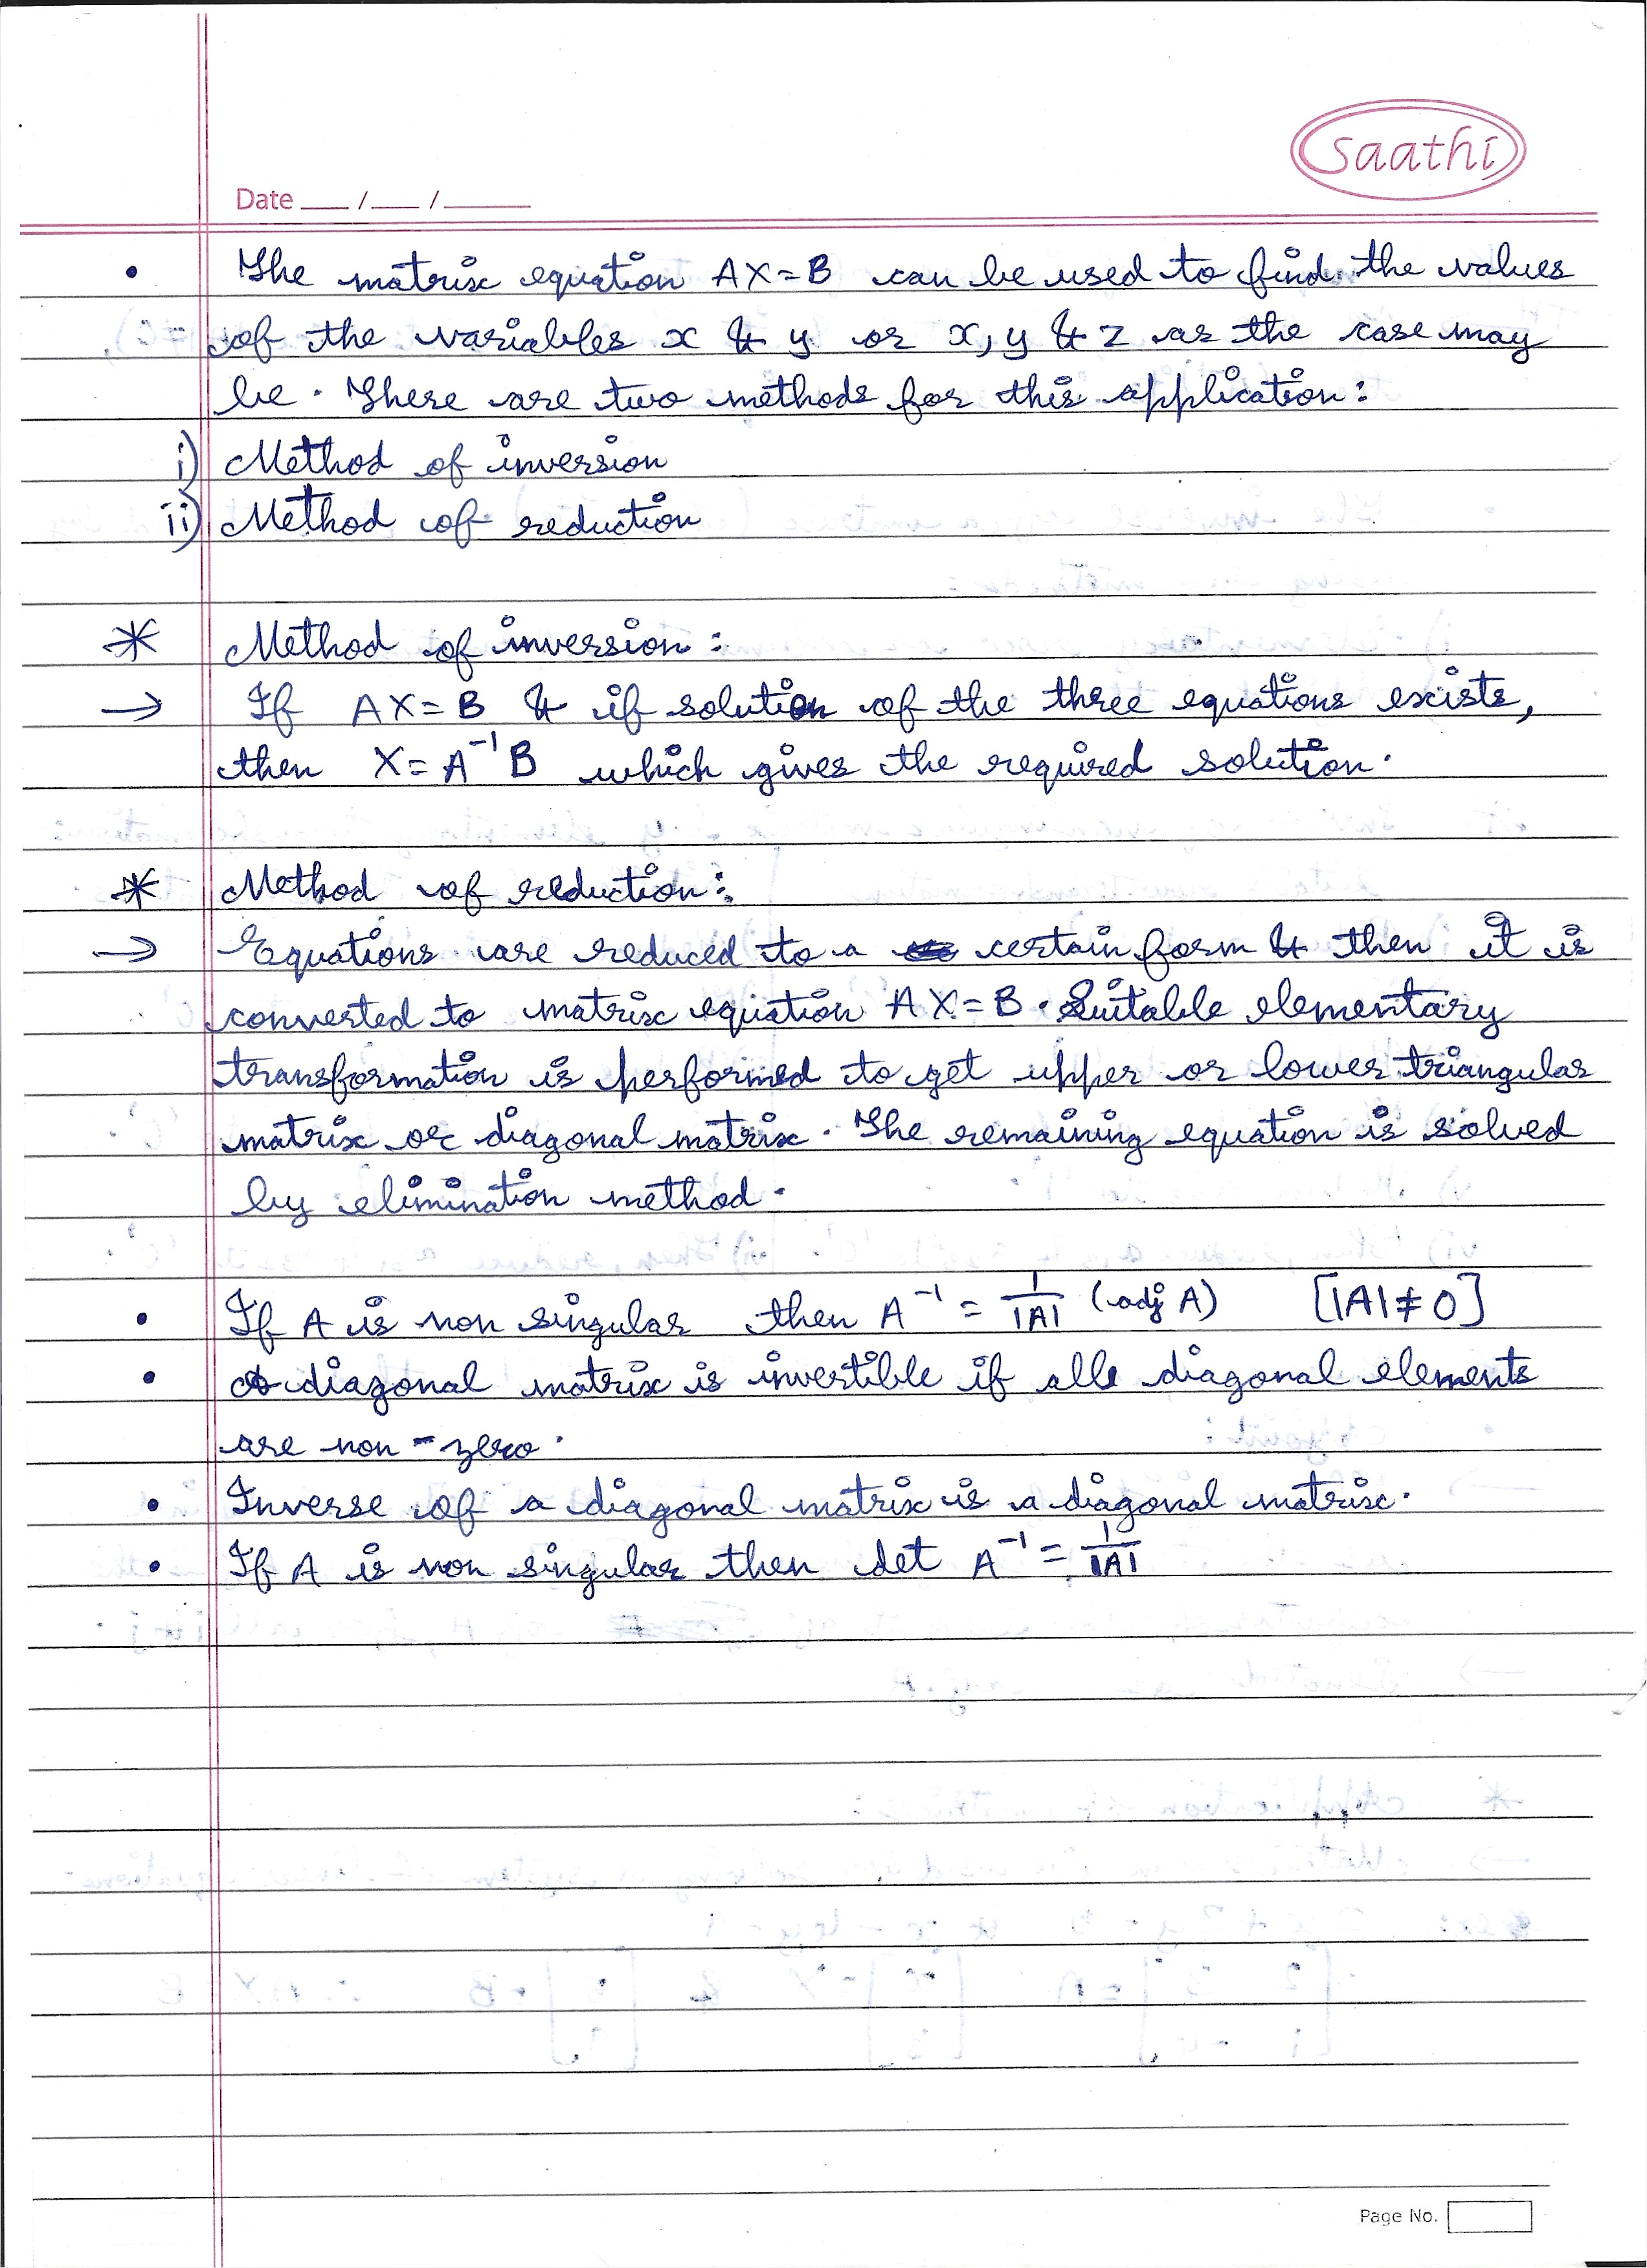 Saathi
Date ___ /___ /______
• The matrix equation AX=B can be used to find the values
of the variables x & y or x, y & z as the case may
be. There are two methods for this application:
i) Method of inversion
ii) Method of reduction
* Method of inversion:
→ If AX=B & if solution of the three equations exists,
then X=A⁻¹B which gives the required solution.
* Method of reduction:
→ Equations are reduced to a certain form & then it is
converted to matrix equation AX=B. Suitable elementary
transformation is performed to get upper or lower triangular
matrix or diagonal matrix. The remaining equation is solved
by elimination method.
• If A is non singular then A⁻¹ = 1/|A| (adj A) [|A|≠0]
• A diagonal matrix is invertible if all diagonal elements
are non-zero.
• Inverse of a diagonal matrix is a diagonal matrix.
• If A is non singular then det A⁻¹ = 1/|A|
Page No.